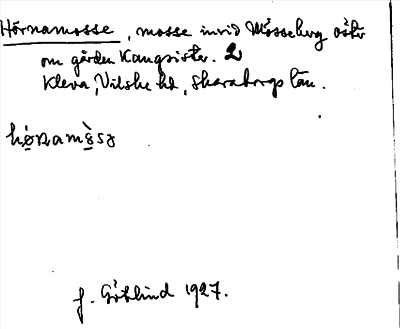 Hörnamosse, mosse invid Mösseberg öster
om gården Kungsister. 2
Kleva, Vilske hd, Skaraborgs län.
J. Götlind 1927.